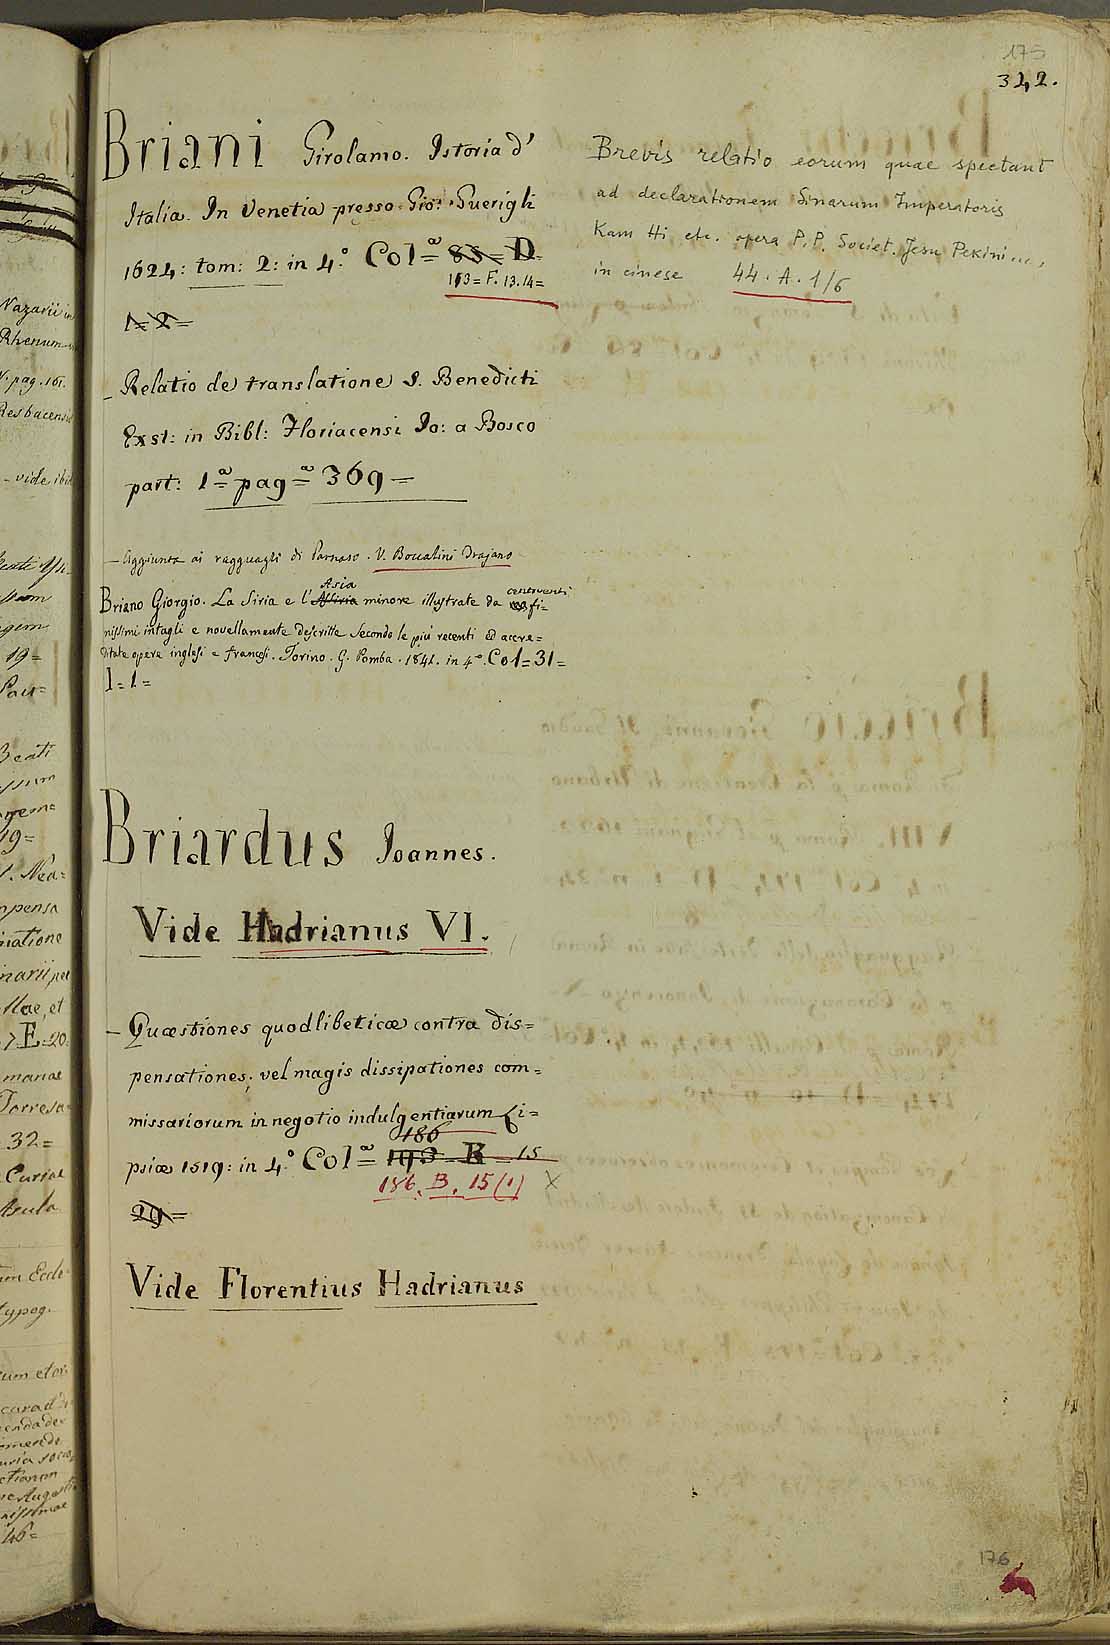 175
342.
Briani Girolamo. Istoria d'
Italia. In Venetia presso Gio: Guerigli
1624: tom: 2: in 4.° Col=ª 83= D=
113= F. 13. 14=
1= 2=
_ Relatio de translatione S. Benedicti
Exst: in Bibl: Floriacensi Io: a Bosco
part: 1ª= pagª= 369=
— Aggiunta ai ragguagli di Parnaso. V. Boccalini Trajano
Asia centoventi
Briano Giorgio. La Siria e l'Assiria minore illustrate da fi=
nissimi intagli e novellamente descritte secondo le più recenti ed accre=
ditate opere inglesi e francesi. Torino. G. Pomba. 1841. in 4°. Col=31=
I=1=
Briardus Ioannes.
Vide Hadrianus VI.
— Quæstiones quodlibeticæ contra dis=
pensationes, vel magis dissipationes com=
missariorum in negotio indulgentiarum Li=
186
psiæ 1519: in 4.° Col=ª 193 B = 15
186. B. 15 (1) X
29=
Vide Florentius Hadrianus
Brevis relatio eorum quae spectant
ad declarationem Sinarum Imperatoris
Kam Hi etc. opera P.P. Societ. Jesu Pekini...,
in cinese 44. A. 1/6
176
Nazarii in
Rhenum
V. pag. 161.
Resbacensi
— vide ibid
19=
Beati
19=
32=
Curiae
Asula
typog.
46=